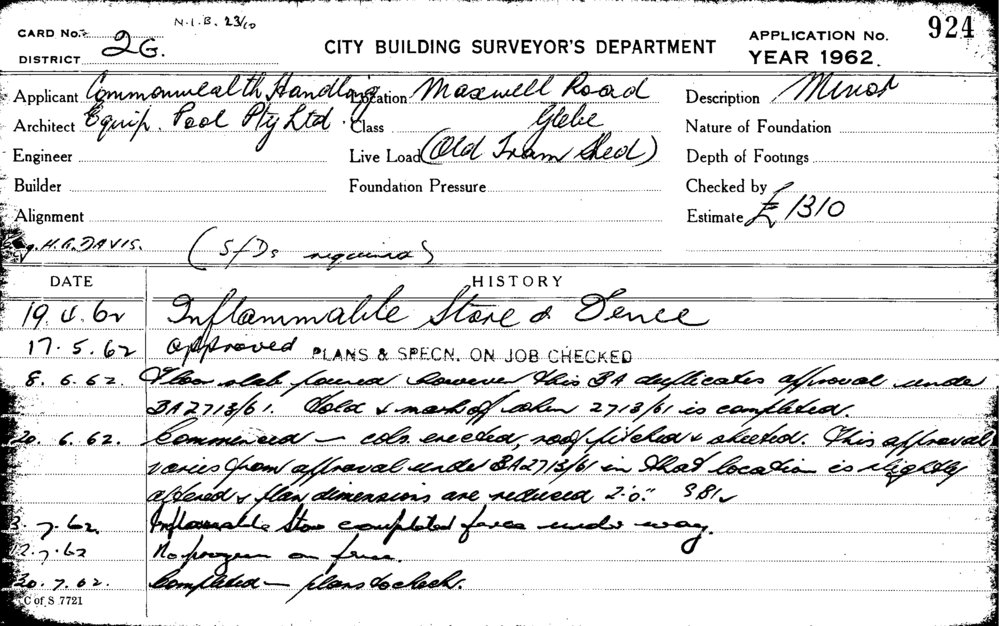 N.I.B. 23/10
CARD No. 2G.
DISTRICT
CITY BUILDING SURVEYOR'S DEPARTMENT
APPLICATION No. 924
YEAR 1962.
Applicant Commonwealth Handling Location Maxwell Road Description Minor
Architect Equip. Pool Pty Ltd. Class Glebe Nature of Foundation
Engineer Live Load (Old Tram Shed) Depth of Footings
Builder Foundation Pressure Checked by
Alignment Estimate £1310
H.G. DAVIS. (S/Ds required)
DATE HISTORY
19.4.62 Inflammable Store & Fence
17.5.62 Approved PLANS & SPECN. ON JOB CHECKED
8.6.62. Floor slab poured however this BA duplicates approval under
BA2713/61. Hold & mark off when 2713/61 is completed.
20.6.62. Commenced — cols. erected, roof pitched & sheeted. This approval
varies from approval under BA2713/61 in that location is slightly
altered & plan dimensions are reduced 2'0".
3.7.62. Inflammable Store completed fence under way.
12.7.62 No progress on fence.
30.7.62. Completed — plans to check.
C of S 7721